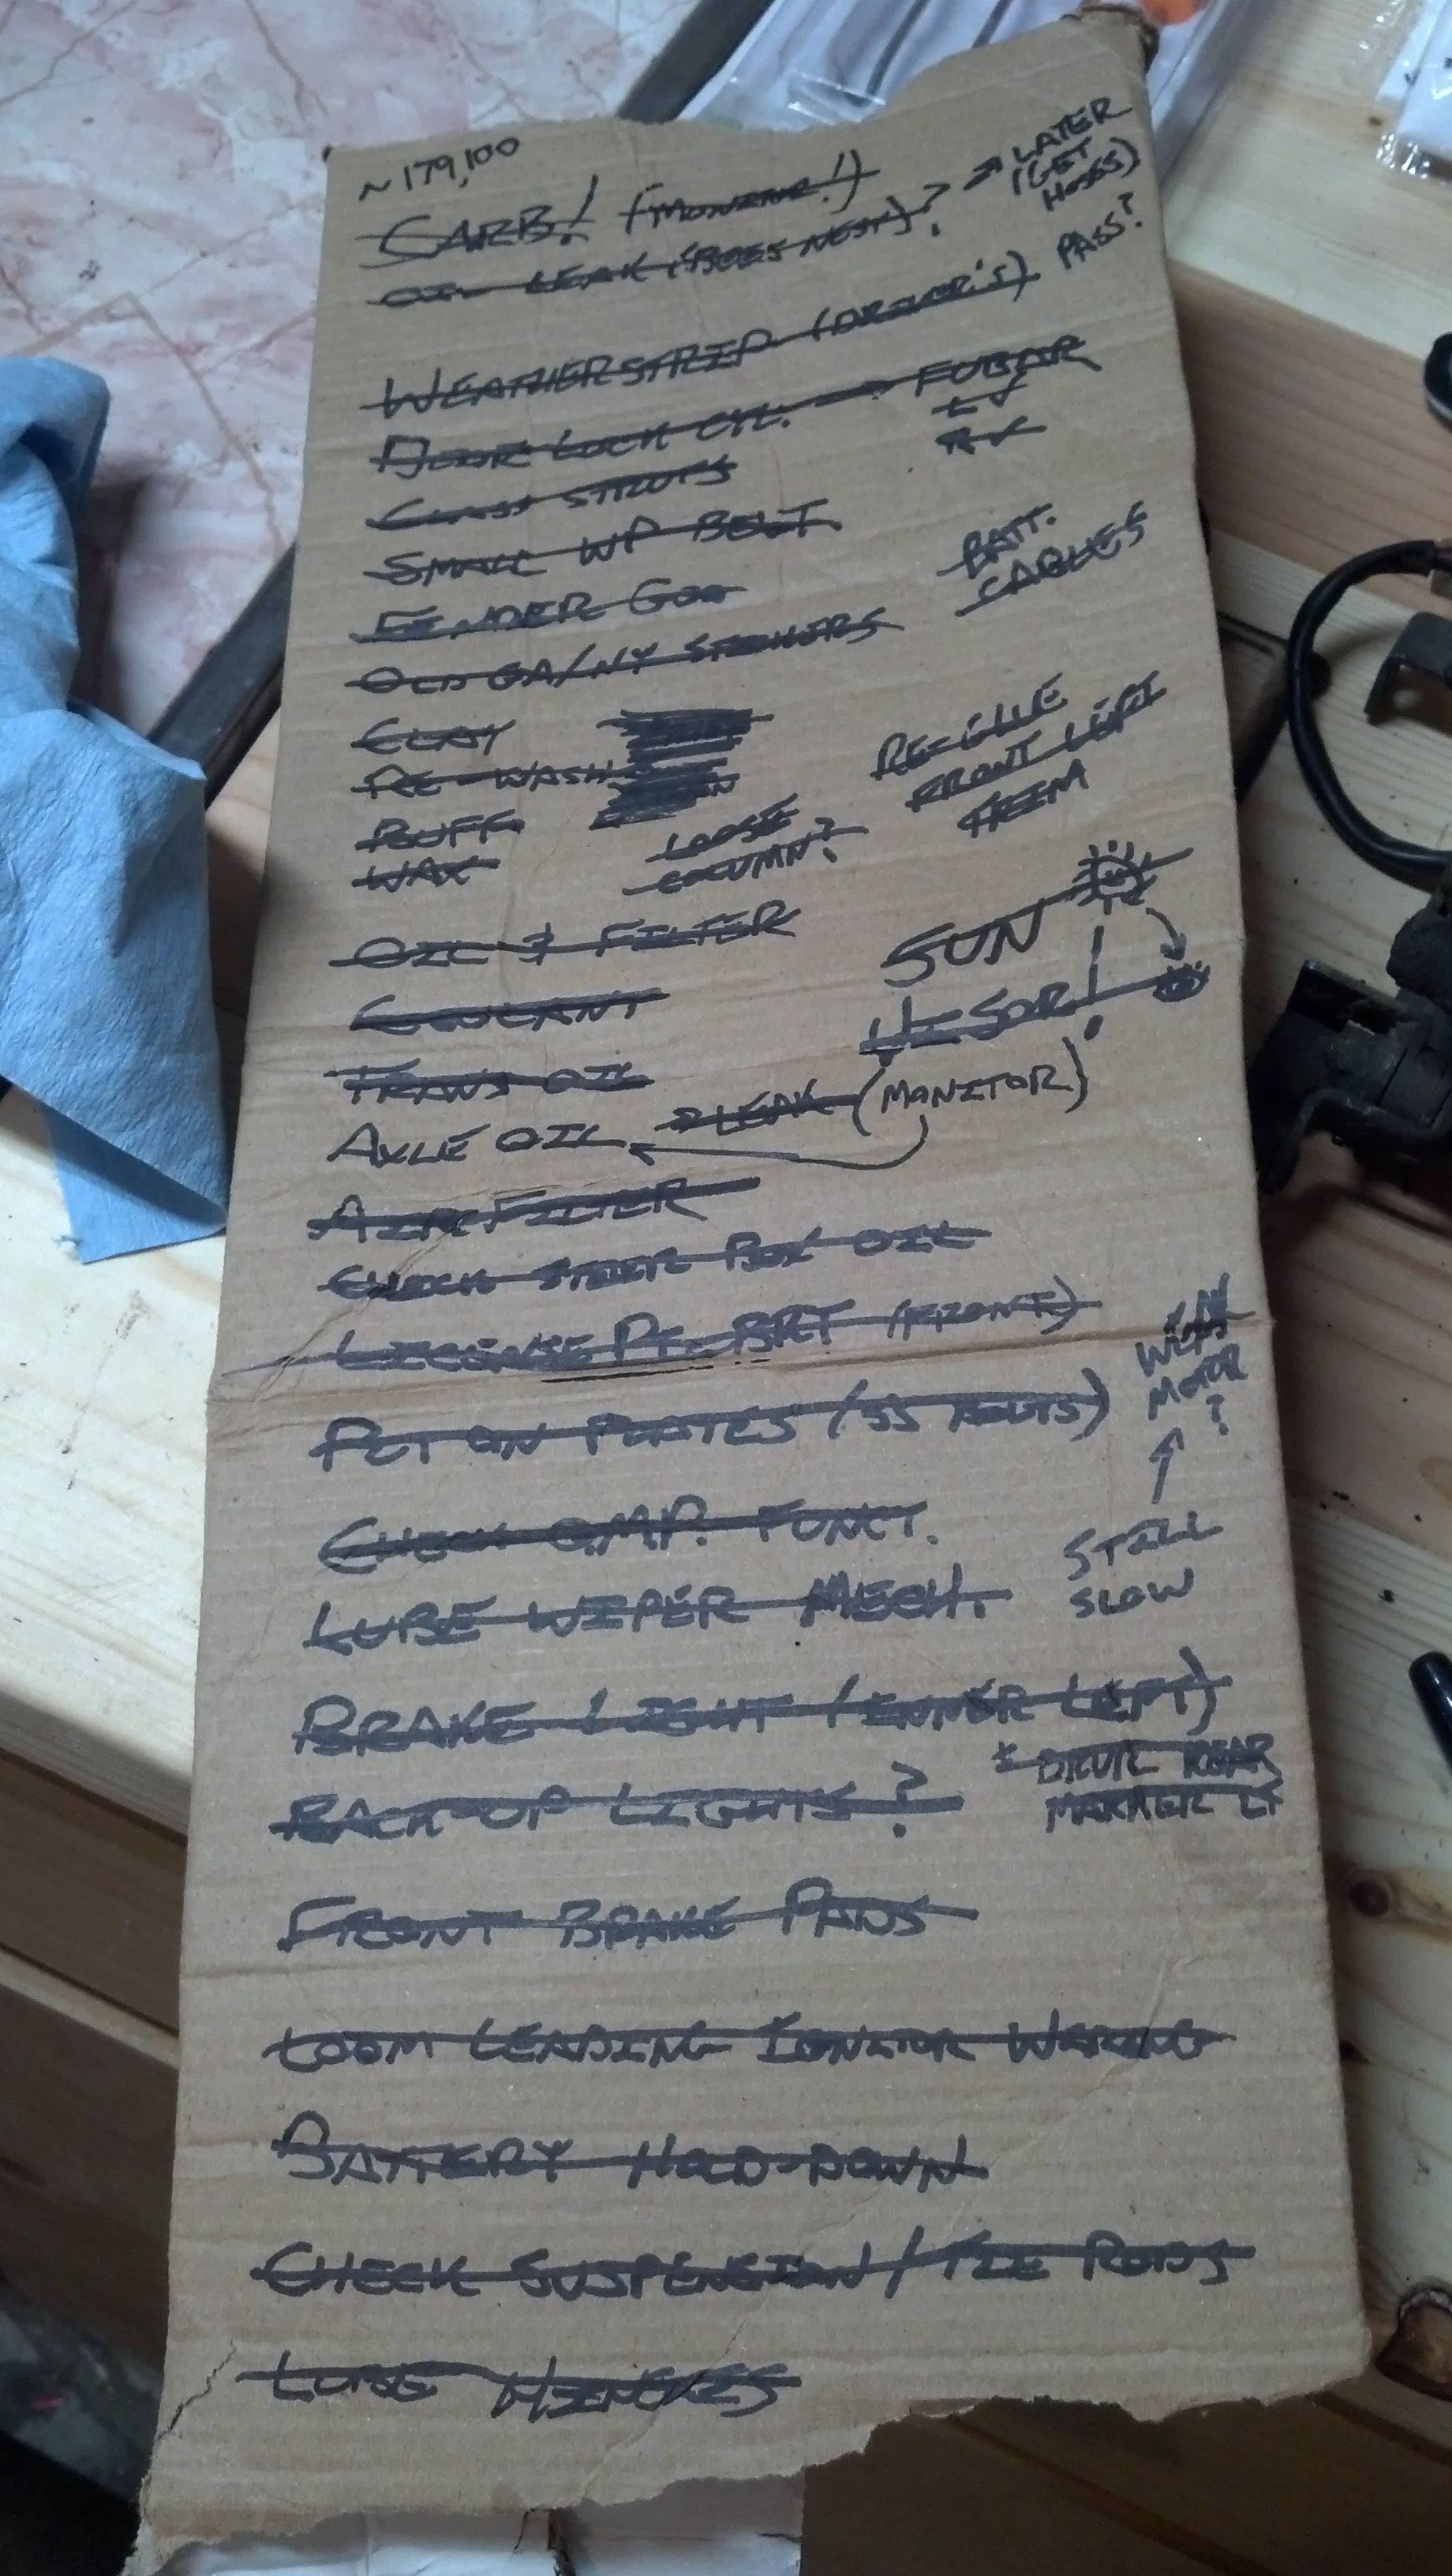 ~179,100
CARB! (MONITOR!)
OIL LEAK (BEES NEST)? → LATER
(GET
HOSES)
WEATHERSTRIP (DRIVER'S) PASS?
DOOR LOCK CYL. → FUBAR
L ✓
R ✓
GLASS STRUTS
SMALL WP BELT
FENDER GOO
BATT.
CABLES
OLD GA/NY STICKERS
CLAY
RE-WASH
BUFF
WAX
LOOSE
COLUMN?
RE-GLUE
FRONT LEFT
TRIM
OIL & FILTER
SUN
VISOR!
COOLANT
TRANS OIL
AXLE OIL → LEAK (MANITOR)
AIR FILTER
CHECK STEER BOX OIL
LICENSE PL. BRT (FRONT)
PUT ON PLATES (SS BOLTS)
WEAK
MOTOR
?
CHECK O.M.P. FUNCT.
LUBE WIPER MECH.
STILL
SLOW
BRAKE LIGHT (INNER LEFT)
BACK-UP LIGHTS?
* DRVR REAR
MARKER LT
FRONT BRAKE PADS
LOOM LEADING IGNITOR WIRING
BATTERY HOLD-DOWN
CHECK SUSPENSION/TIE RODS
LUBE HINGES